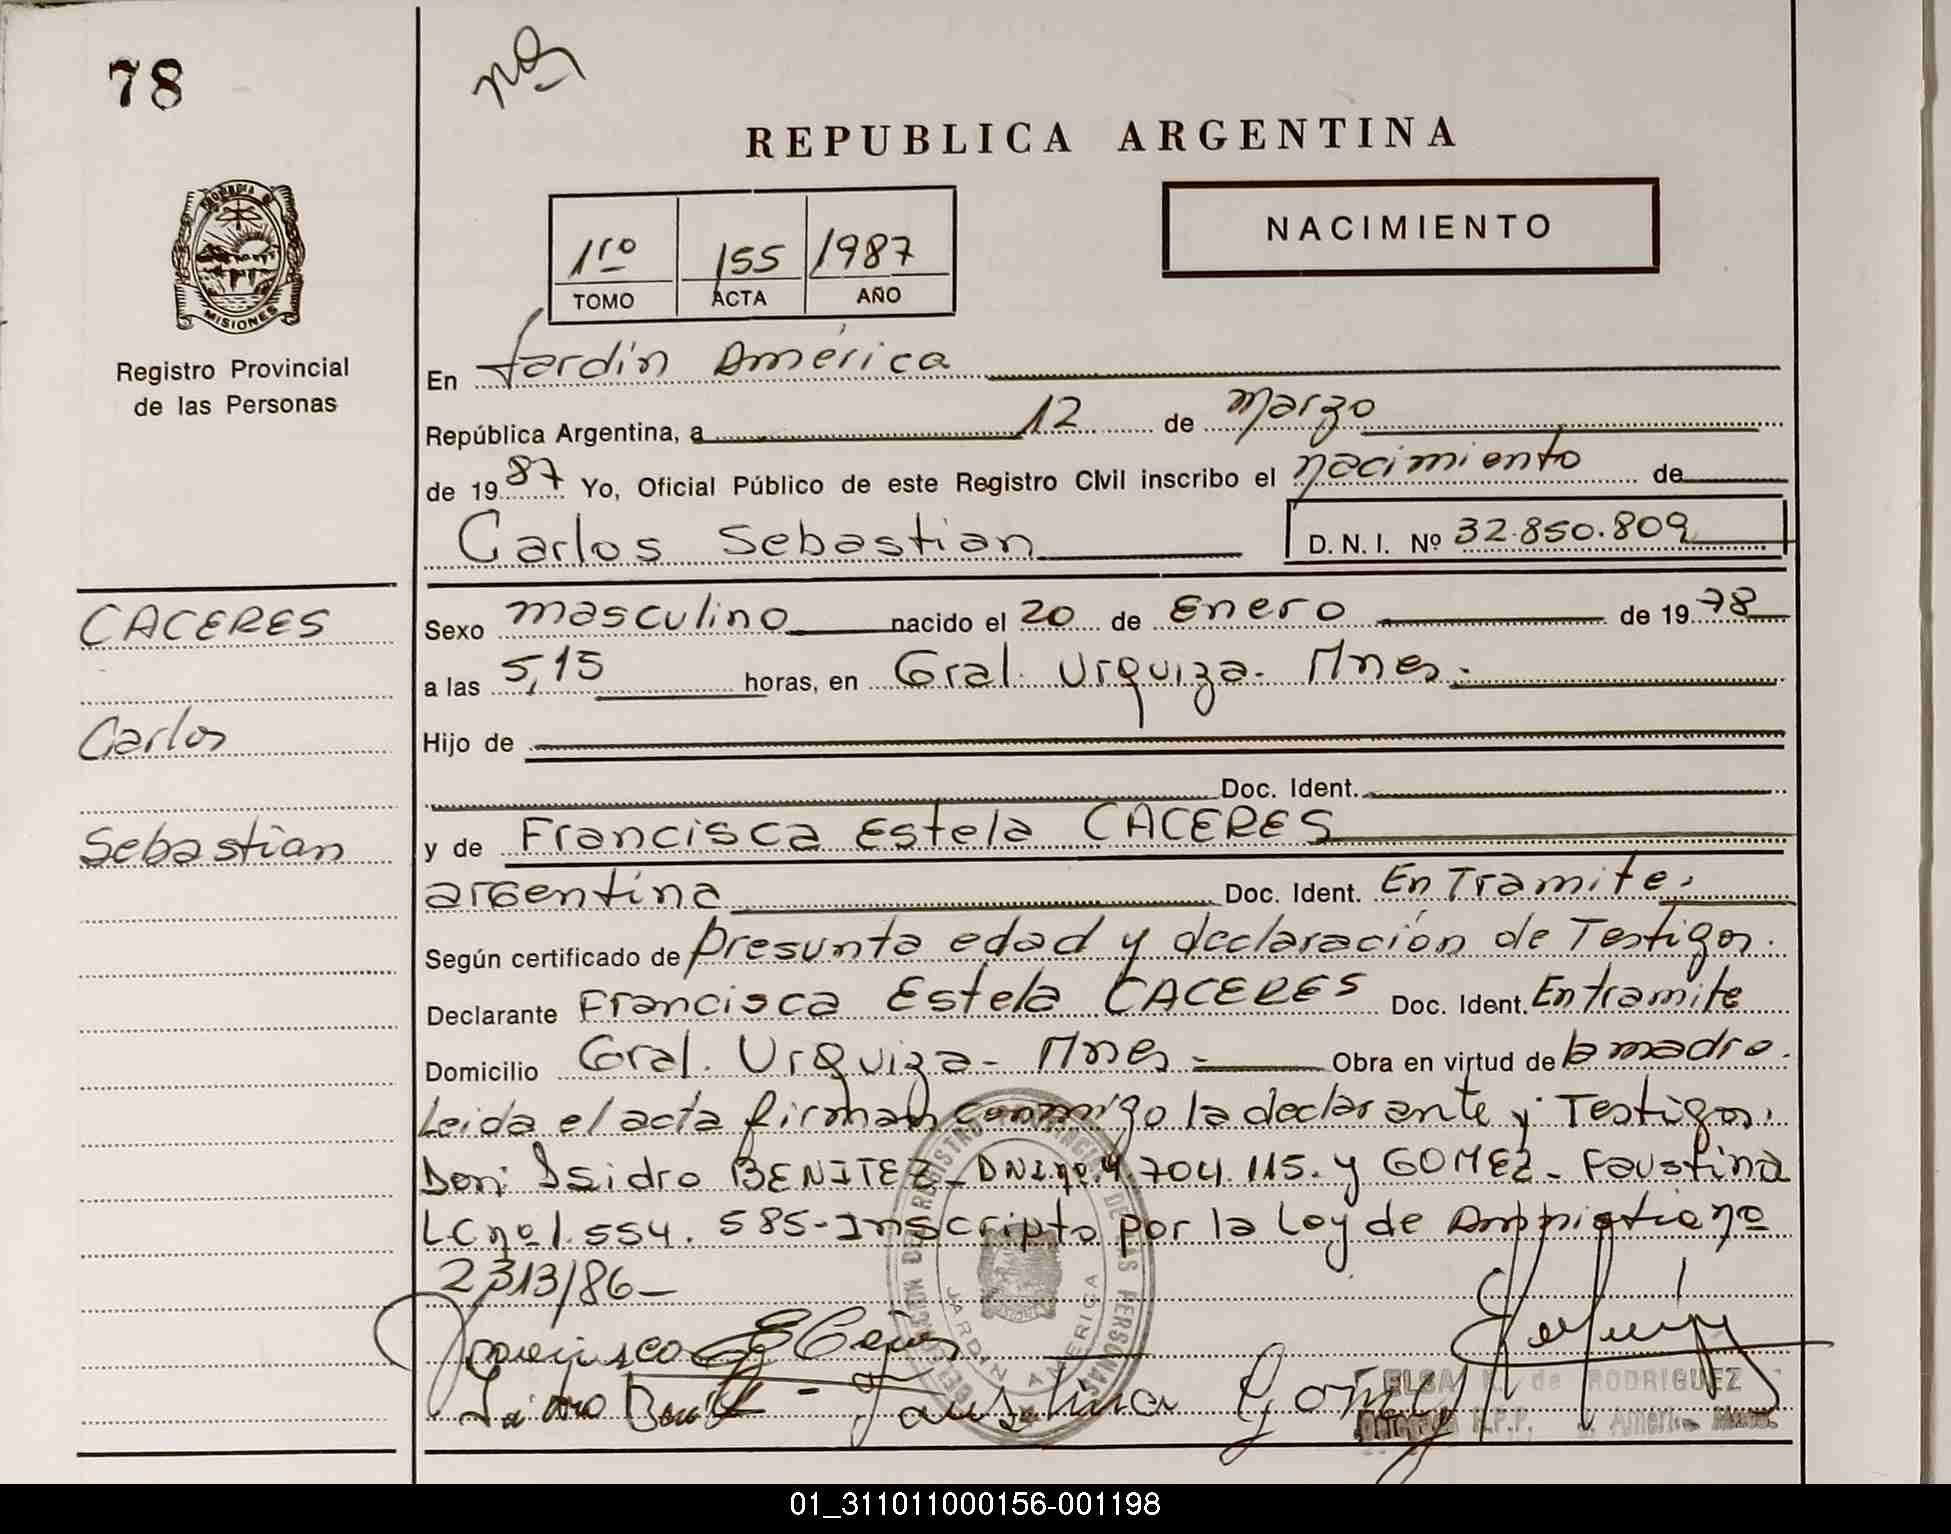 78
REPUBLICA ARGENTINA
PROVINCIA DE
MISIONES
Registro Provincial
de las Personas
1ro 155 1987
TOMO ACTA AÑO
NACIMIENTO
En Jardin América
República Argentina, a 12 de Marzo
de 1987 Yo, Oficial Público de este Registro Civil inscribo el nacimiento de
Carlos Sebastian D. N. I. Nº 32.850.809
CACERES
Carlos
Sebastian
Sexo masculino nacido el 20 de Enero de 1978
a las 5,15 horas, en Gral. Urquiza- Mnes.
Hijo de
Doc. Ident.
y de Francisca Estela CACERES
argentina Doc. Ident. En Tramite.
Según certificado de presunta edad y declaración de Testigos.
Declarante Francisca Estela CACERES Doc. Ident. En tramite
Domicilio Gral. Urquiza- Mnes = Obra en virtud de la madre.
Leida el acta firman conmigo la declarante y Testigos:
Don: Isidro BENITEZ- DNI.nº.4.704.115. y GOMEZ- Faustina
LC nº 1.554.585- Inscripto por la Ley de Amnistia nº
2313/86-
Francisca E
Isidro Benitez - Faustina Gomez
DEL REGISTRO PROVINCIAL DE LAS PERSONAS
JARDIN AMERICA
ELSA de RODRIGUEZ
R.P.P. J. América
01_311011000156-001198